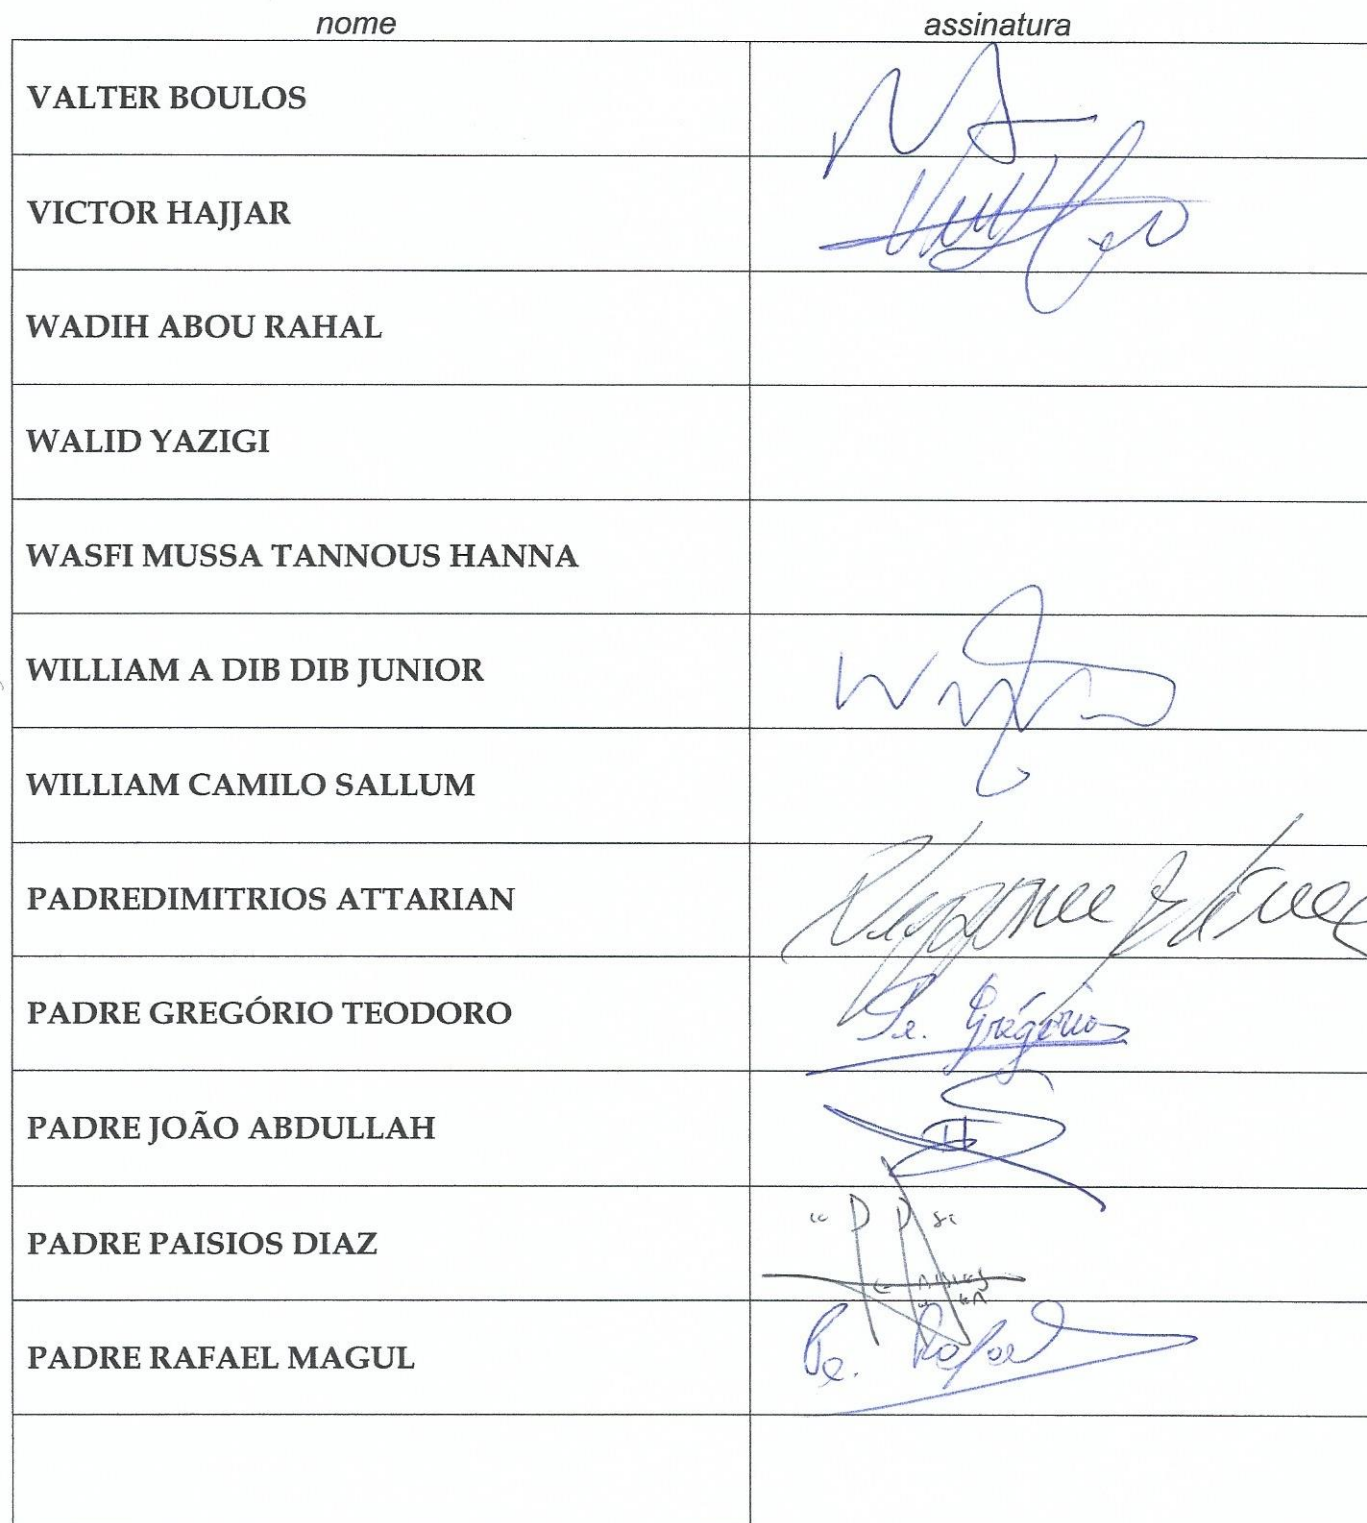 nome assinatura
VALTER BOULOS
VICTOR HAJJAR
WADIH ABOU RAHAL
WALID YAZIGI
WASFI MUSSA TANNOUS HANNA
WILLIAM A DIB DIB JUNIOR
WILLIAM CAMILO SALLUM
PADREDIMITRIOS ATTARIAN
PADRE GREGÓRIO TEODORO Pe. Gregório
PADRE JOÃO ABDULLAH
PADRE PAISIOS DIAZ
PADRE RAFAEL MAGUL Pe. Rafael